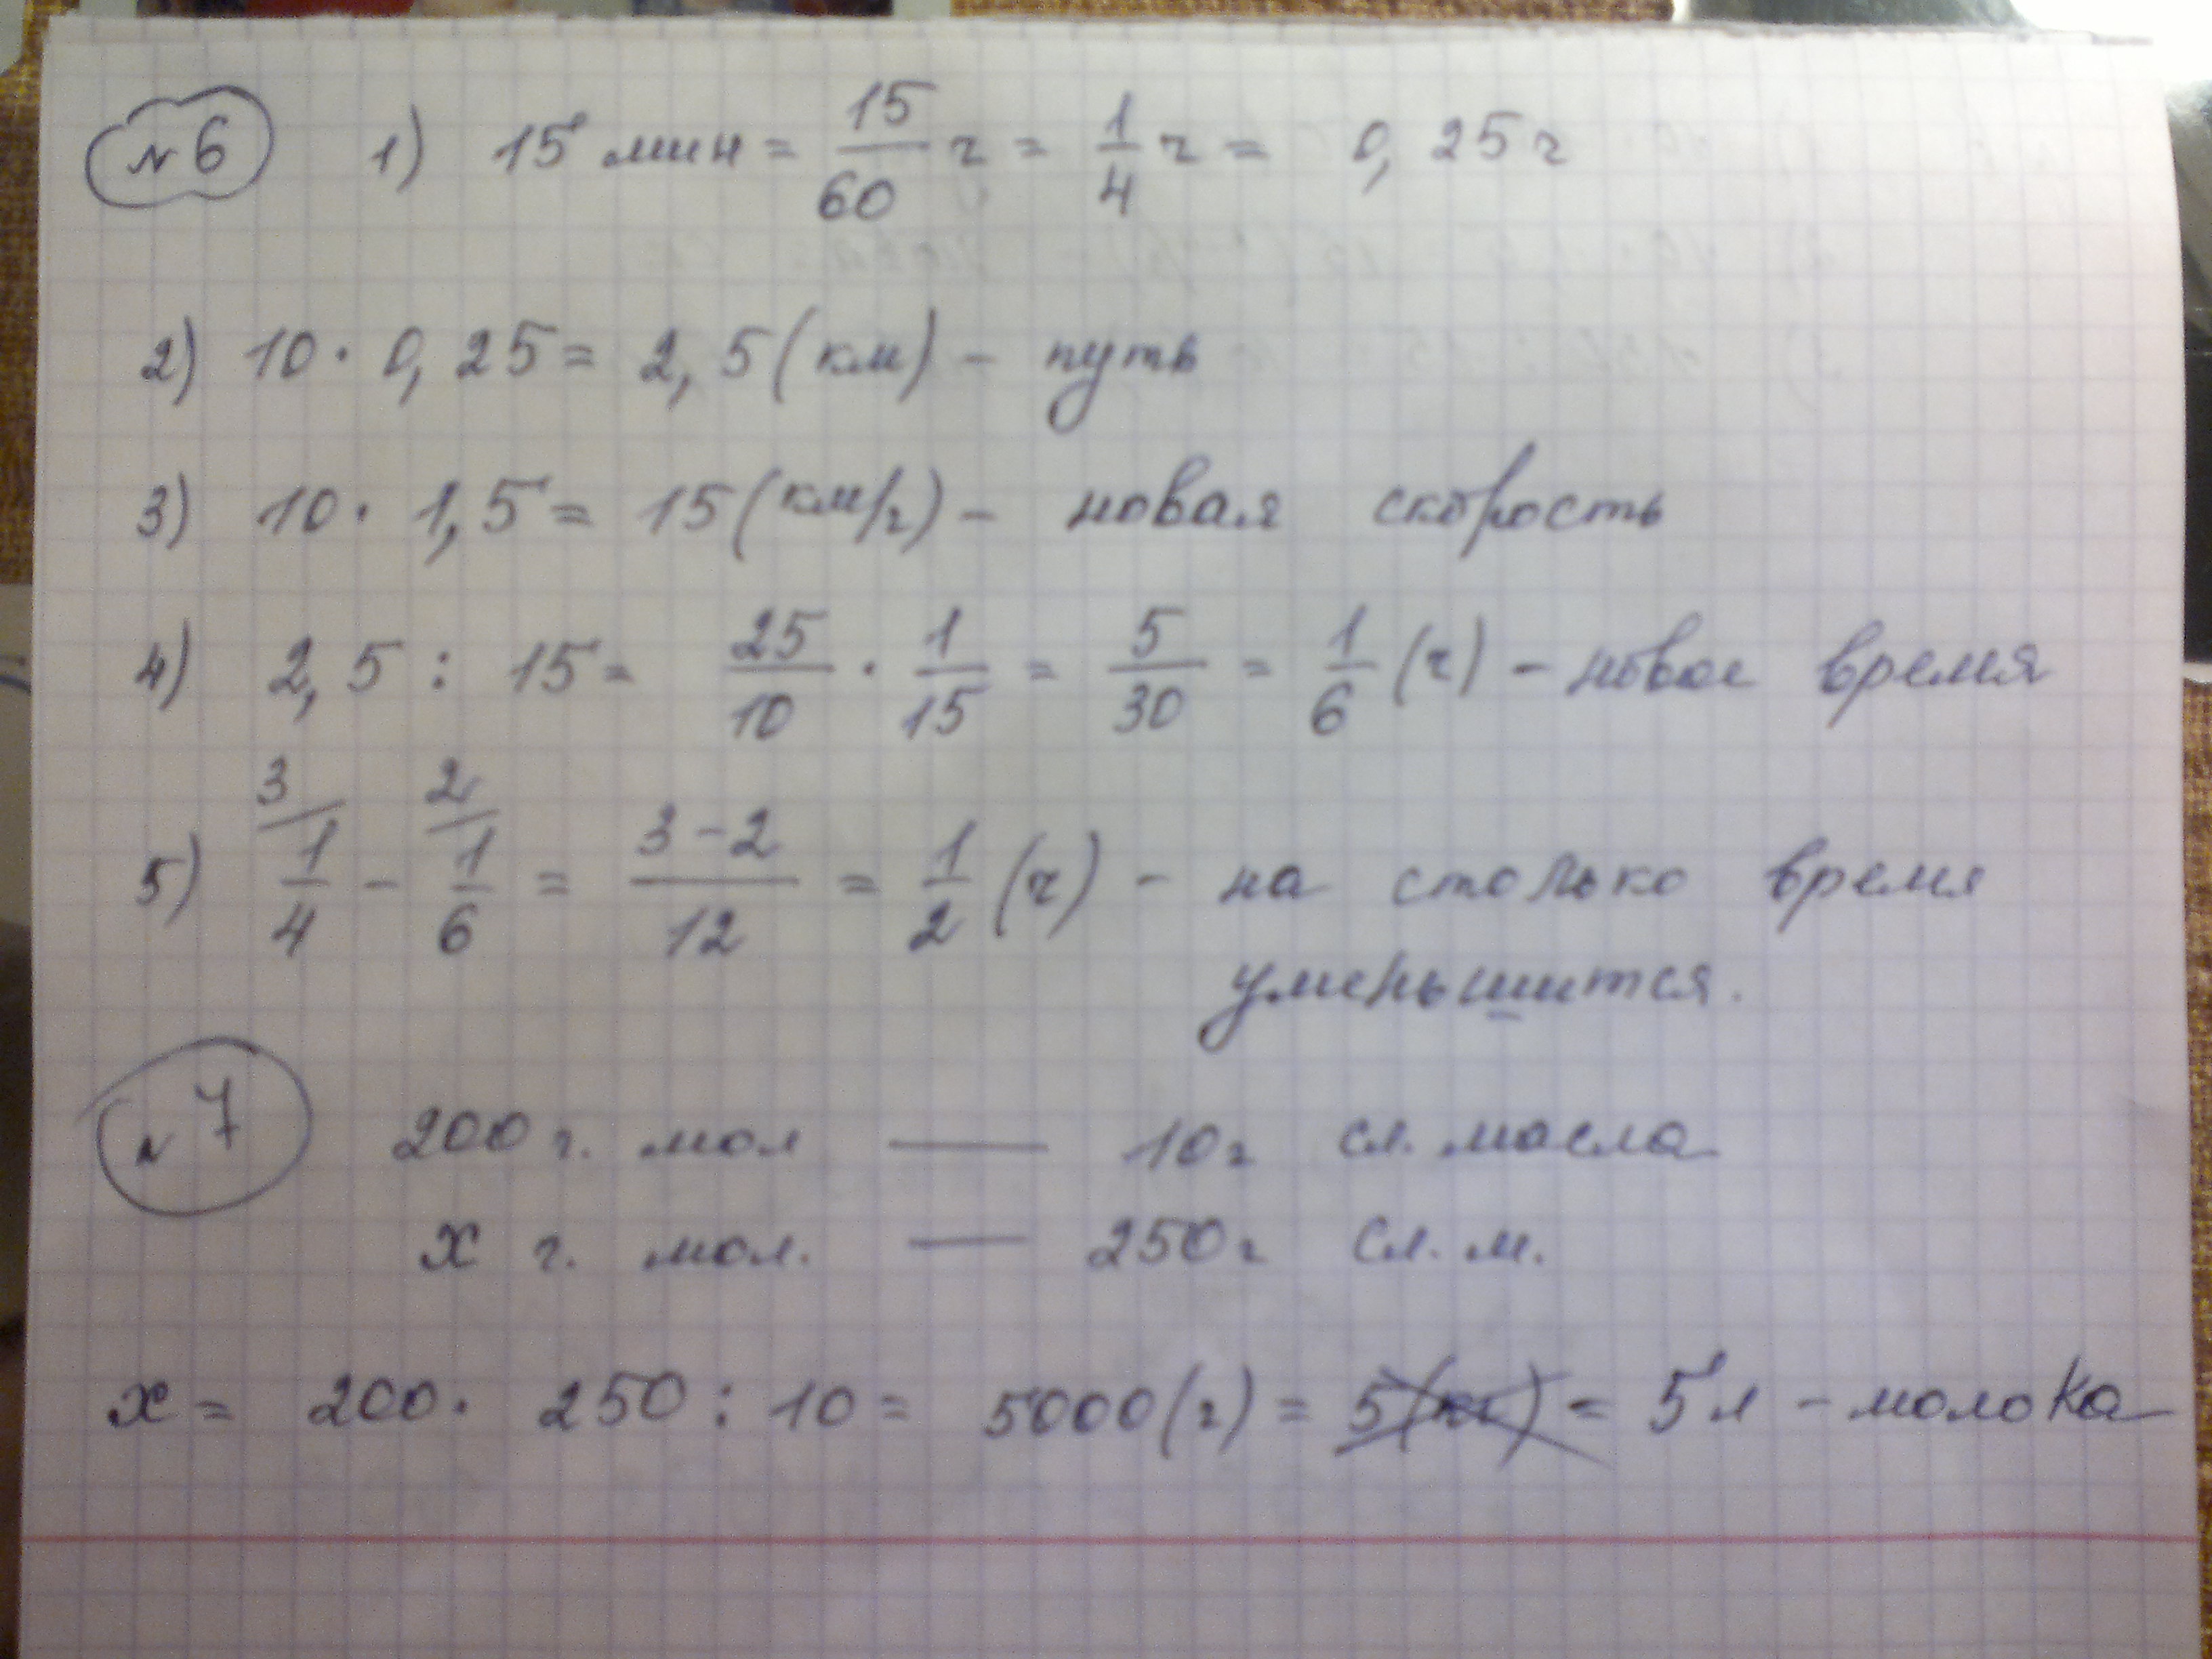 №6 1) 15 мин = 15/60 ч = 1/4 ч = 0,25 ч
2) 10 · 0,25 = 2,5 (км) – путь
3) 10 · 1,5 = 15 (км/ч) – новая скорость
4) 2,5 : 15 = 25/10 · 1/15 = 5/30 = 1/6 (ч) – новое время
5) 3/ 1/4 – 2/ 1/6 = 3-2/12 = 1/2 (ч) – на столько время
уменьшится.
№7 200 г. мол — 10 г сл. масла
х г. мол. — 250 г сл. м.
х = 200 · 250 : 10 = 5000 (г) = 5 (кг) = 5 л – молока